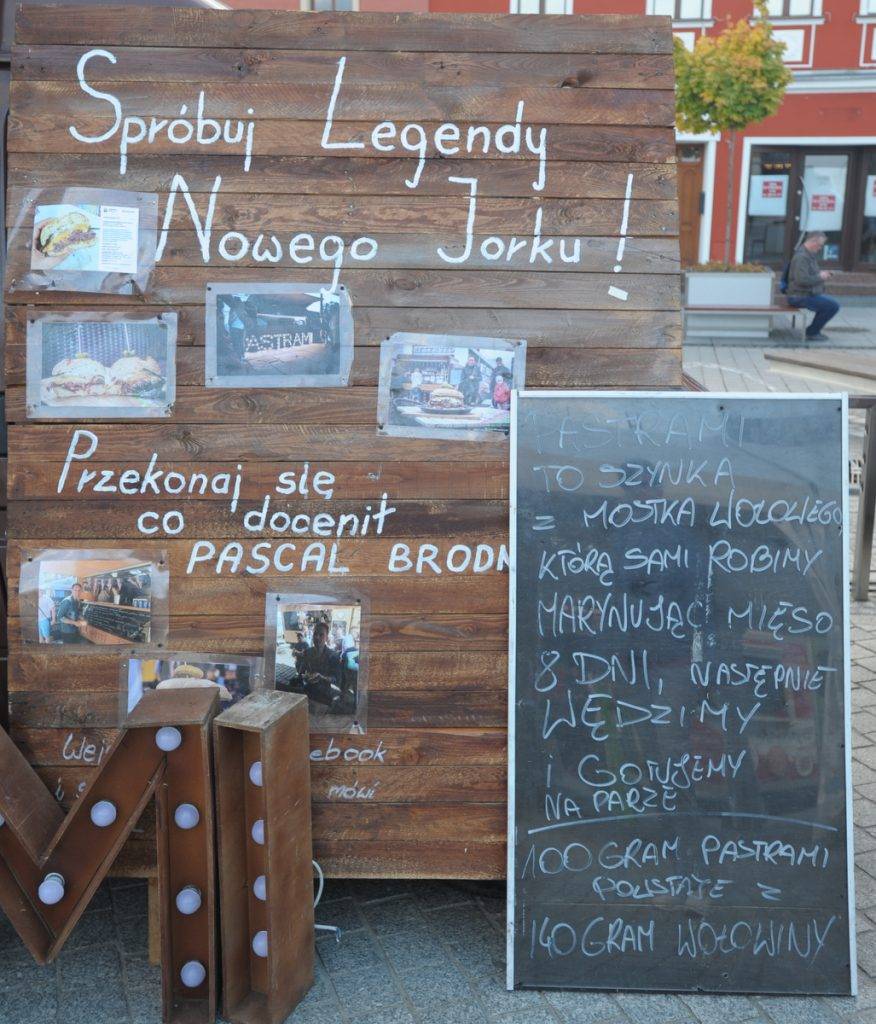 Spróbuj Legendy
Nowego Jorku!
PASTRAMI
Przekonaj się
co docenił
PASCAL BRODN
Wej
ebook
i
mówi
MI
PASTRAMI
TO SZYNKA
Z MOSTKA WOŁOWEGO
KTÓRĄ SAMI ROBIMY
MARYNUJĄC MIĘSO
8 DNI, NASTĘPNIE
WĘDZIMY
i GOTUJEMY
NA PARZE
100 GRAM PASTRAMI
POWSTAJE Z
140 GRAM WOŁOWINY